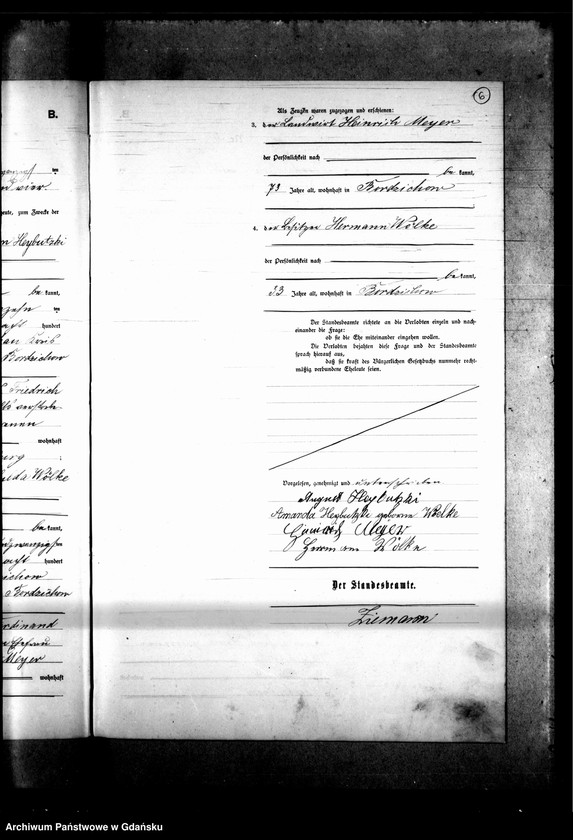 B.
vier.
zum Zwecke der
Heybutzki
be kannt,
zehn
hundert
Bordzichow
Friedrich
wohnhaft
Wölke
be kannt,
hundert
Bordzichow
Ferdinand
Ehefrau
Meyer
wohnhaft
6
Als Zeugen waren zugezogen und erschienen:
3. der Landwirt Heinrich Meyer
der Persönlichkeit nach
be kannt,
73 Jahre alt, wohnhaft in Bordzichow
4. der Besitzer Hermann Wölke
der Persönlichkeit nach
be kannt,
33 Jahre alt, wohnhaft in Bordzichow
Der Standesbeamte richtete an die Verlobten einzeln und nach-
einander die Frage:
ob sie die Ehe miteinander eingehen wollen.
Die Verlobten bejahten diese Frage und der Standesbeamte
sprach hierauf aus,
daß sie kraft des Bürgerlichen Gesetzbuchs nunmehr recht-
mäßig verbundene Eheleute seien.
Vorgelesen, genehmigt und unterschrieben
August Heybutzki
Amanda Heybutzki geborene Wölke
Heinrich Meyer
Hermann Wölke
Der Standesbeamte.
Ziemann
Archiwum Państwowe w Gdańsku